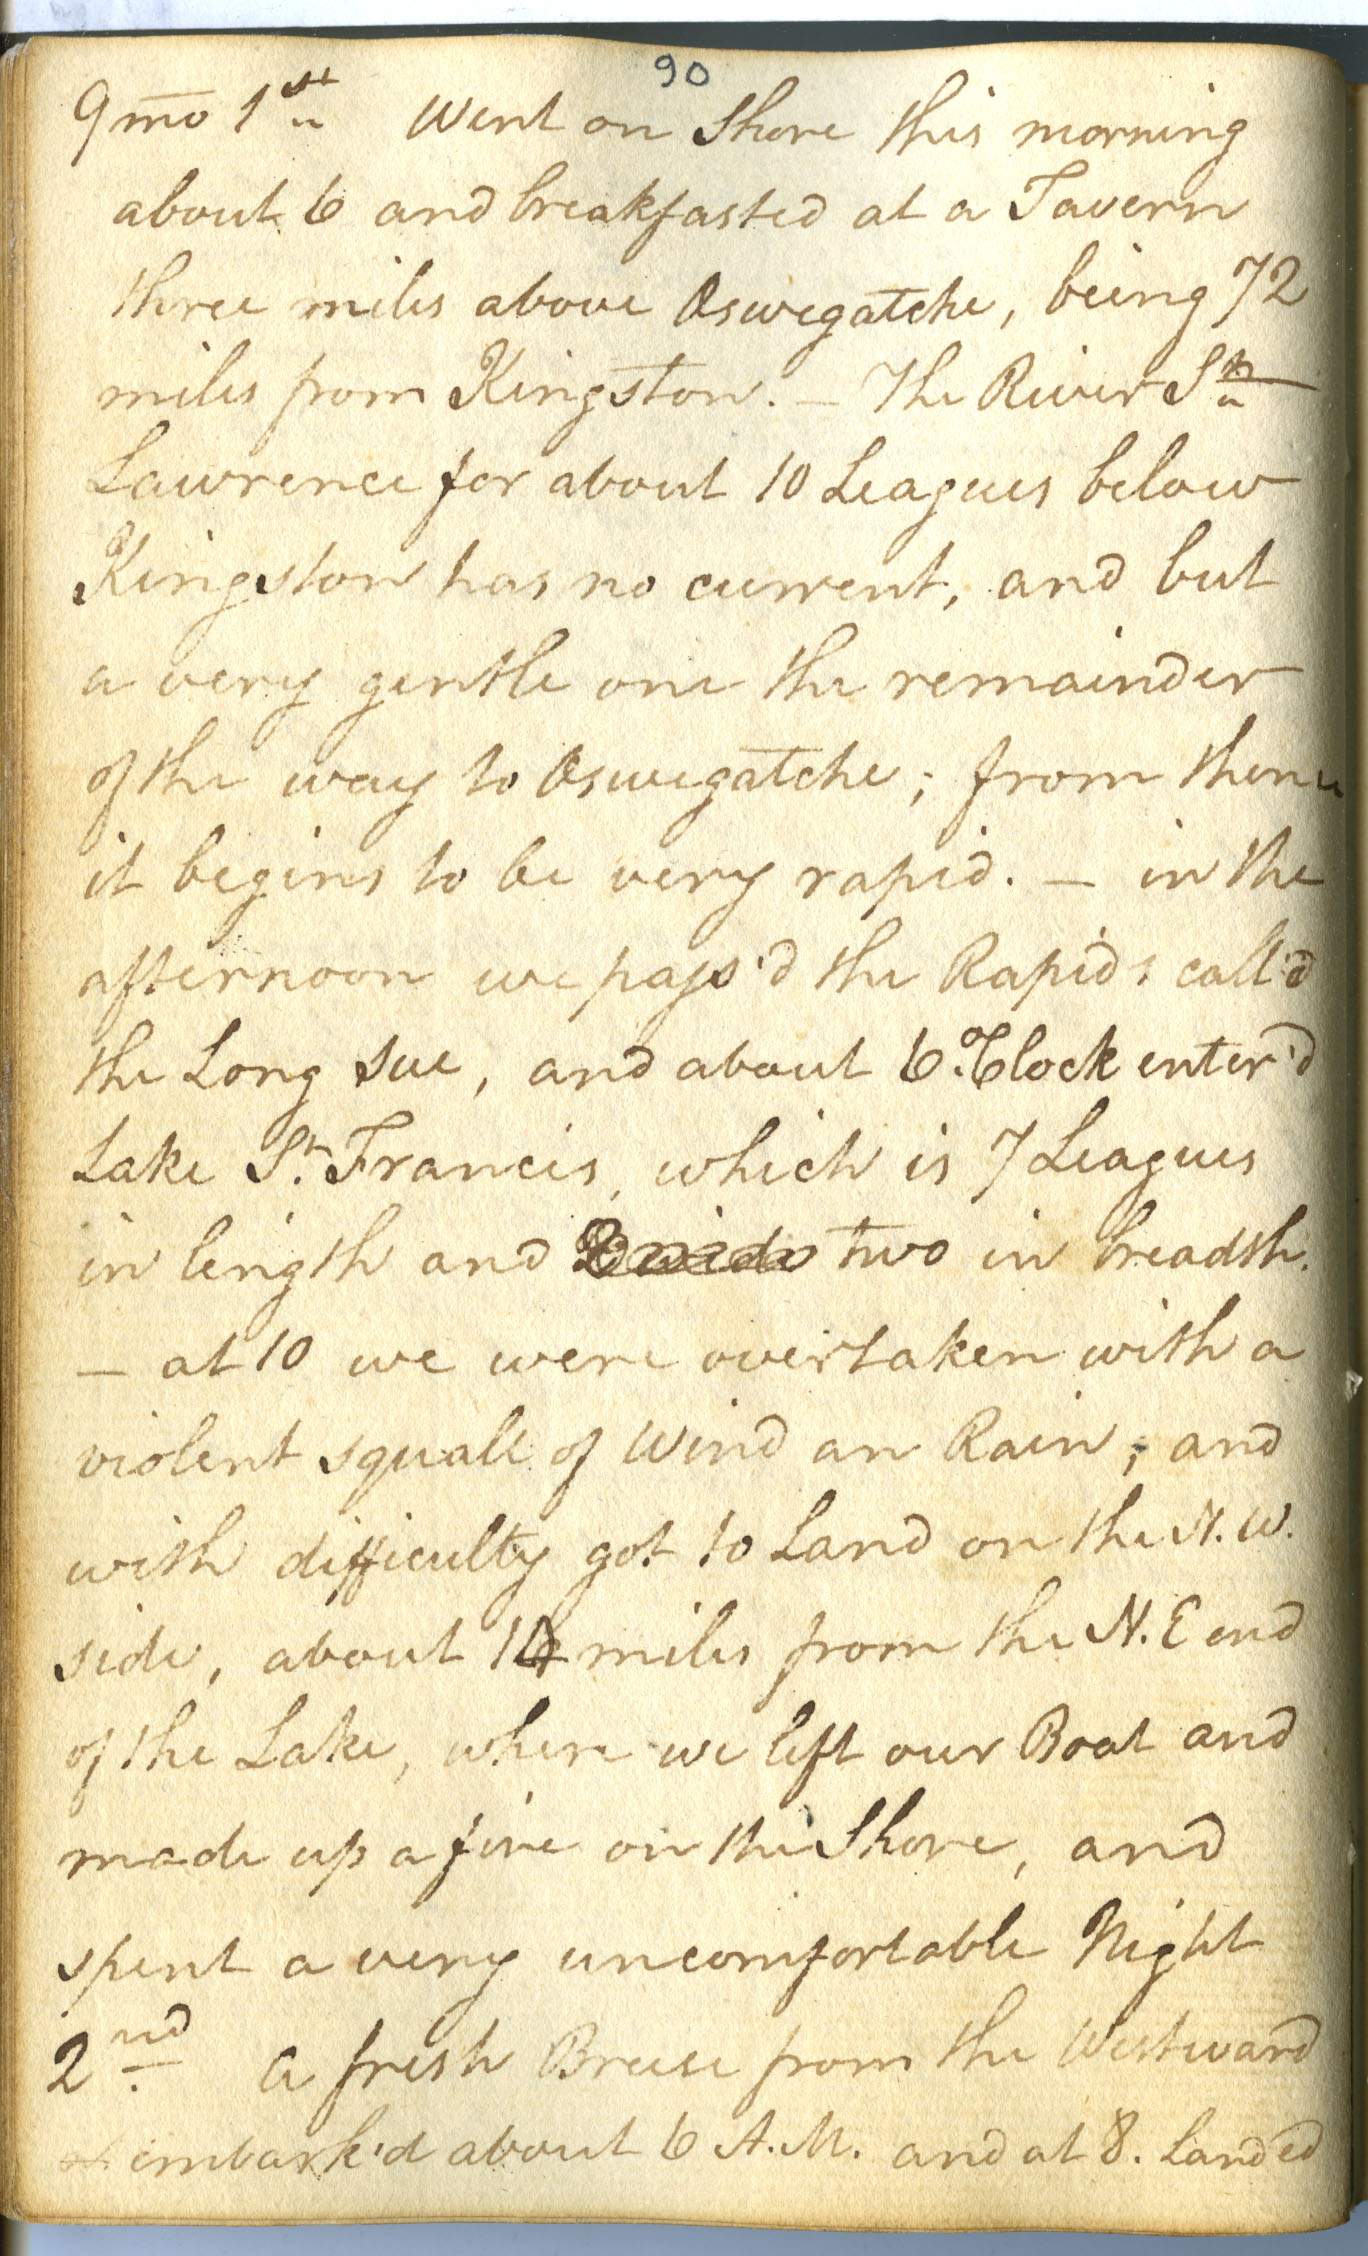 90
9 mo 1st Went on Shore this morning
about 6 and breakfasted at a Tavern
three miles above Oswegatche, being 72
miles from Kingston. — The River St
Lawrence for about 10 Leagues below
Kingston has no current, and but
a very gentle one the remainder
of the way to Oswegatche; from thence
it begins to be very rapid. — in the
afternoon we pass'd the Rapids call'd
the Long Sue, and about 6 oClock enter'd
Lake St. Francis, which is 7 Leagues
in length and two in breadth.
— at 10 we were overtaken with a
violent squall of Wind an Rain; and
with difficulty got to Land on the N.W.
side, about 14 miles from the N.E end
of the Lake, where we left our Boat and
made up a fire on the Shore, and
spent a very uncomfortable Night
2nd a fresh Breese from the Westward
embark'd about 6 A.M. and at 8. Landed